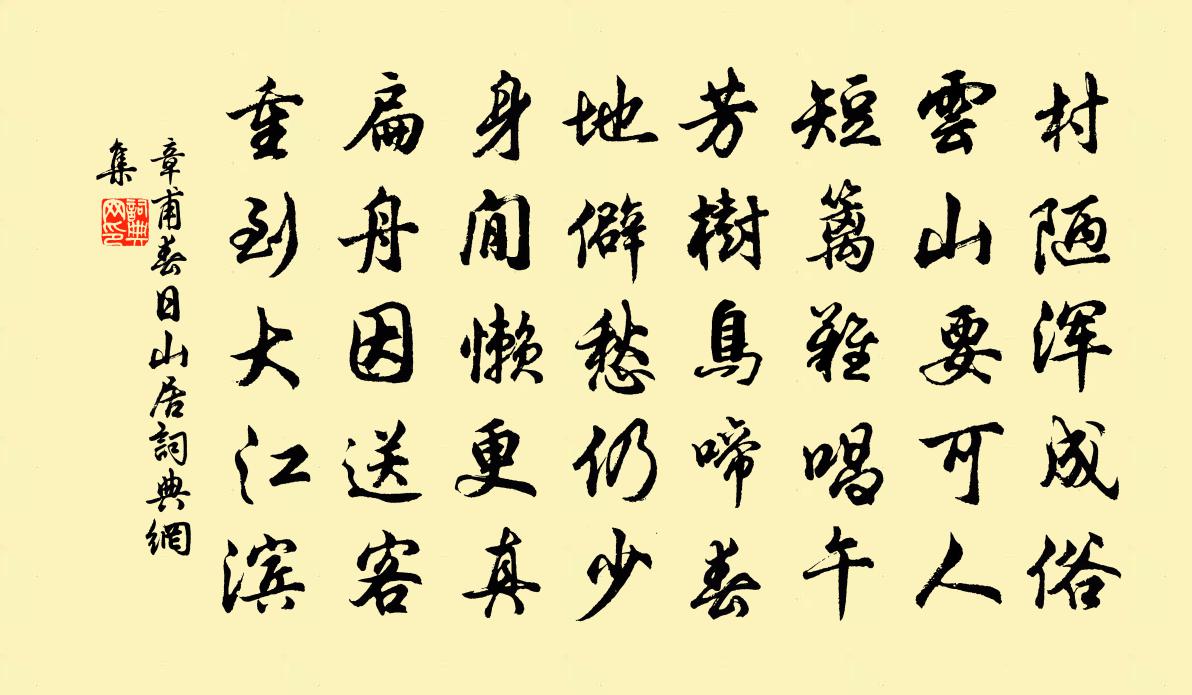 村陋浑成俗
雲山要可人
短篱雞唱午
芳樹鳥啼春
地僻愁仍少
身閒懒更真
扁舟因送客
重到大江滨
章甫春日山居詞典網
集
詞典網印